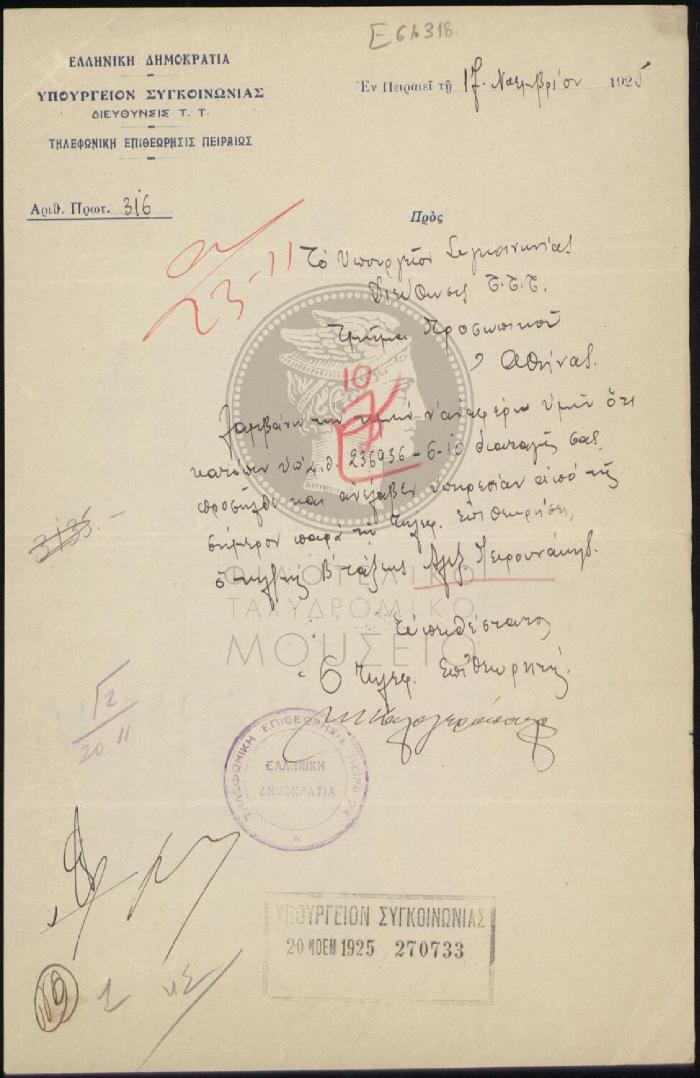 E61318
ΕΛΛΗΝΙΚΗ ΔΗΜΟΚΡΑΤΙΑ
ΥΠΟΥΡΓΕΙΟΝ ΣΥΓΚΟΙΝΩΝΙΑΣ
ΔΙΕΥΘΥΝΣΙΣ Τ. Τ.
ΤΗΛΕΦΩΝΙΚΗ ΕΠΙΘΕΩΡΗΣΙΣ ΠΕΙΡΑΙΩΣ
Ἐν Πειραιεῖ τῇ 17 Νοεμβρίου 1925
Ἀριθ. Πρωτ. 316
Πρὸς
23-11
Τὸ Ὑπουργεῖον Συγκοινωνίας
Διεύθυνσις Τ.Τ.Τ.
Τμῆμα Προσωπικοῦ
Ἀθήνας.
10
Λαμβάνω τὴν τιμὴν ν' ἀναφέρω ὑμῖν ὅτι
κατόπιν ὑπ' ἀριθ. 236936-6-10 διαταγῆς σας
προσῆλθε καὶ ἀνέλαβεν ὑπηρεσίαν ἀπὸ τῆς
σήμερον παρὰ τῇ τηλεφ. Ἐπιθεωρήσει,
ὁ Β' τάξεως Ἀλεξ.
Εὐπειθέστατος
Ὁ Τηλεφ. Ἐπιθεωρητὴς
ΦΙΛΟΤΕΛΙΚΟ
ΤΑΧΥΔΡΟΜΙΚΟ
ΜΟΥΣΕΙΟ
20.11
ΤΗΛΕΦΩΝΙΚΗ ΕΠΙΘΕΩΡΗΣΙΣ ΠΕΙΡΑΙΩΣ
ΕΛΛΗΝΙΚΗ
ΔΗΜΟΚΡΑΤΙΑ
ΥΠΟΥΡΓΕΙΟΝ ΣΥΓΚΟΙΝΩΝΙΑΣ
20 ΝΟΕΜ 1925 270733